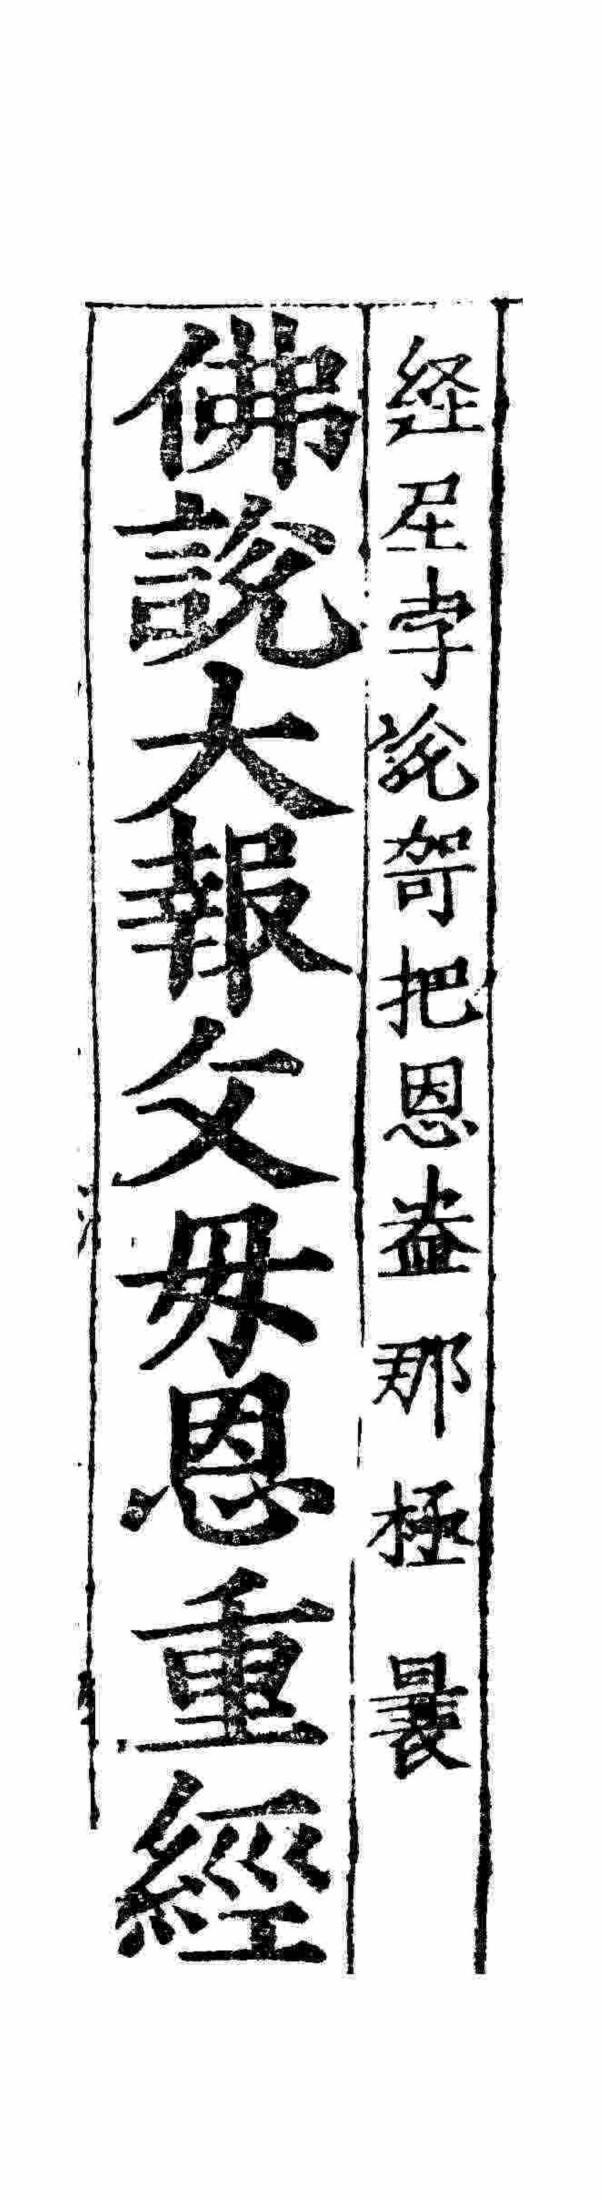 経孛說哿把恩盎那極曩
佛說大報父母恩重經